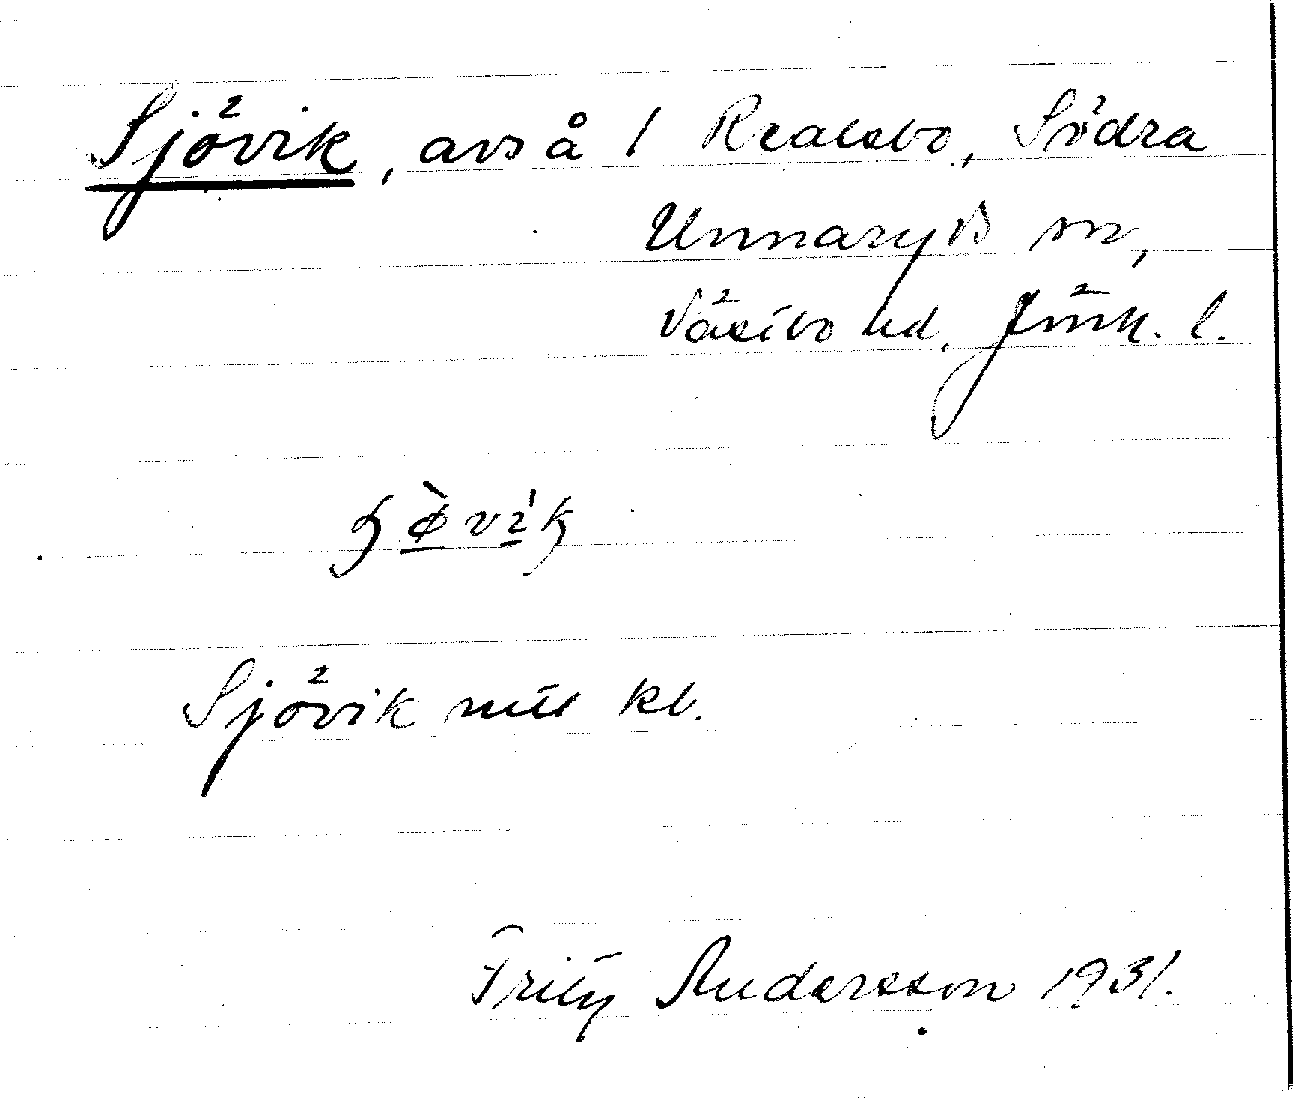 Sjövik, avs å / Realsbo, Södra
Unnaryds sn,
Västbo hd, Jönk. l.
Sjövik nütt kb.
Frity Andersson 1931.